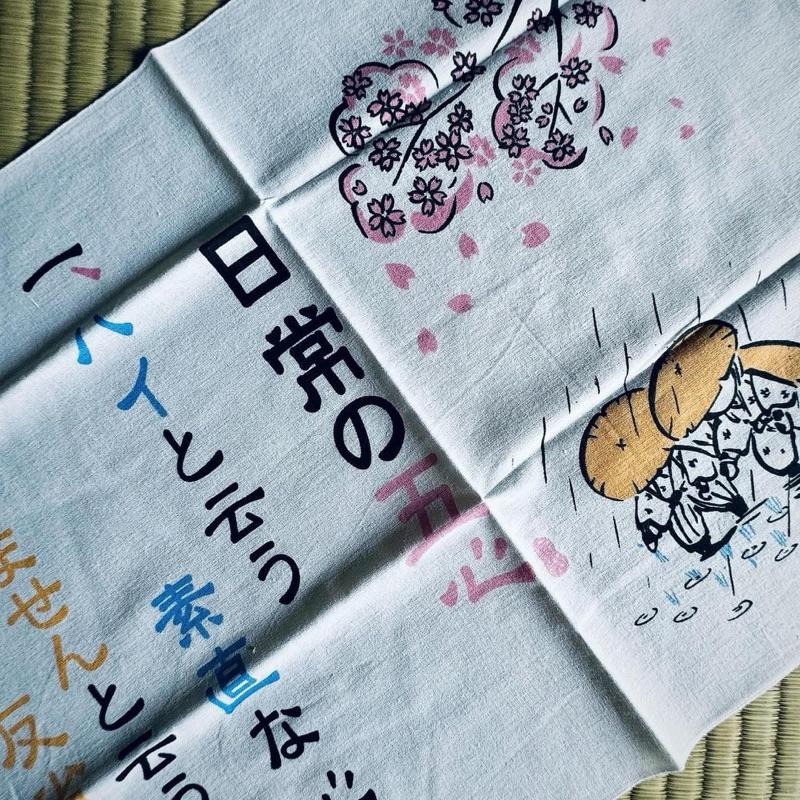 日常の五心
一、ハイと云う素直な
ませんと云う
反